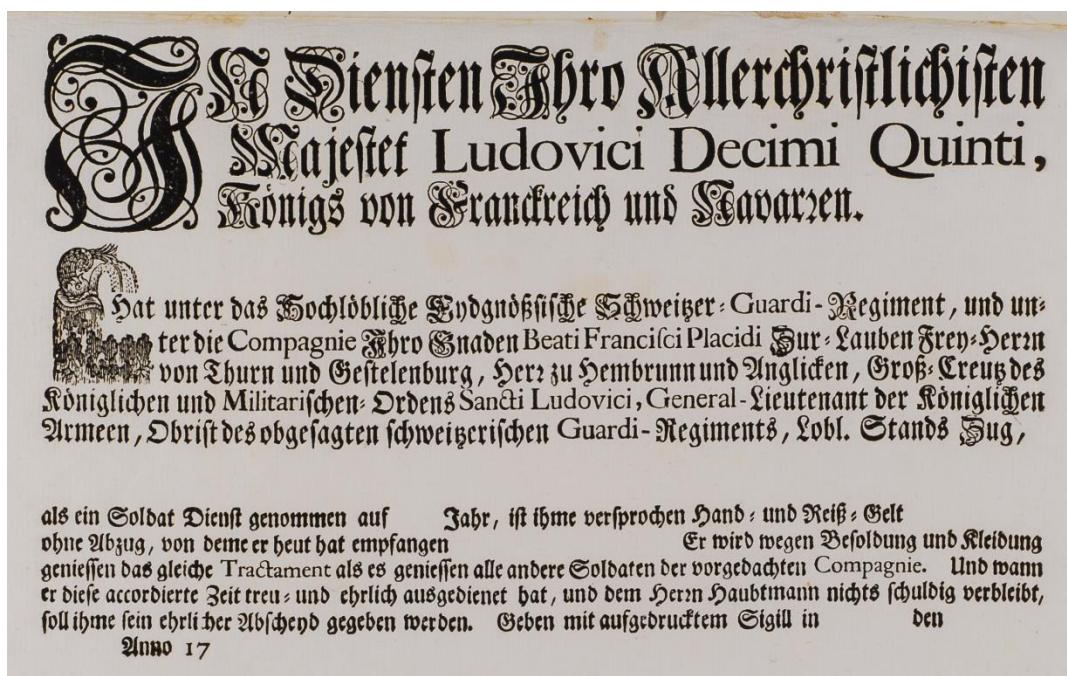 IN Diensten Ihro Allerchristlichisten
Majestet Ludovici Decimi Quinti,
Königs von Franckreich und Navarren.
Hat unter das Hochlöbliche Eydgnößsische Schweitzer-Guardi-Regiment, und un-
ter die Compagnie Ihro Gnaden Beati Francisci Placidi Zur-Lauben Frey-Herrn
von Thurn und Gestelenburg, Herr zu Hembrunn und Anglicken, Groß-Creutz des
Königlichen und Militarischen-Ordens Sancti Ludovici, General-Lieutenant der Königlichen
Armeen, Obrist des obgesagten schweitzerischen Guardi-Regiments, Lobl. Stands Zug,
als ein Soldat Dienst genommen auf Jahr, ist ihme versprochen Hand- und Reiß-Gelt
ohne Abzug, von deme er heut hat empfangen Er wird wegen Besoldung und Kleidung
geniessen das gleiche Tractament als es geniessen alle andere Soldaten der vorgedachten Compagnie. Und wann
er diese accordierte Zeit treu- und ehrlich ausgedienet hat, und dem Herrn Haubtmann nichts schuldig verbleibt,
soll ihme sein ehrlicher Abscheyd gegeben werden. Geben mit aufgedrucktem Sigill in den
Anno 17